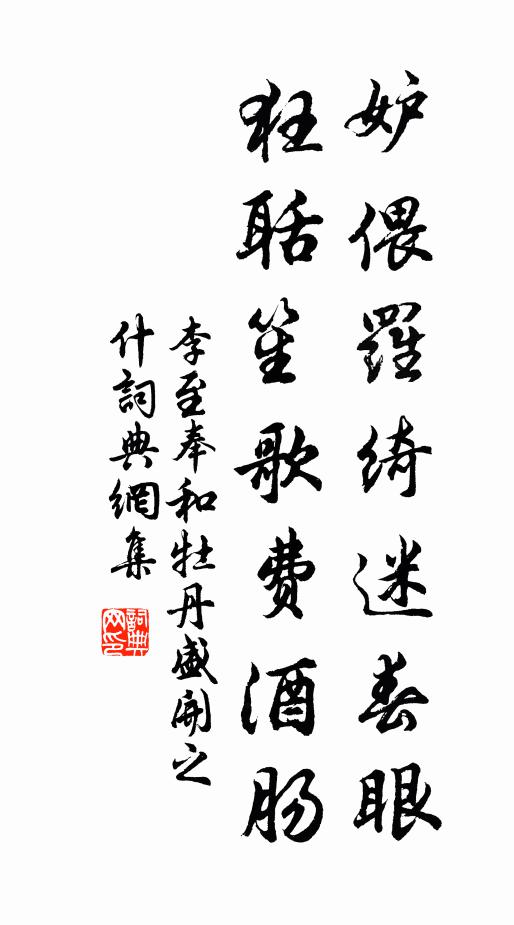 妒偎羅綺迷春眼
狂聒笙歌费酒肠
李至奉和牡丹盛開之
什詞典網集
詞典
网印